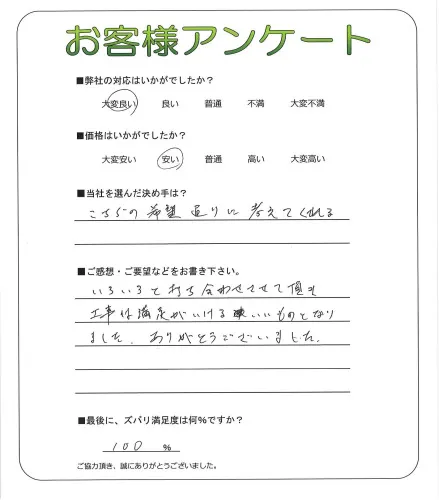 お客様アンケート
■弊社の対応はいかがでしたか？
大変良い 良い 普通 不満 大変不満
■価格はいかがでしたか？
大変安い 安い 普通 高い 大変高い
■当社を選んだ決め手は？
こちらの希望通りに考えてくれる
■ご感想・ご要望などをお書き下さい。
いろいろと打ち合わせさせて頂き
工事は満足がいける いいものとなり
ました。ありがとうございました。
■最後に、ズバリ満足度は何％ですか？
100 ％
ご協力頂き、誠にありがとうございました。